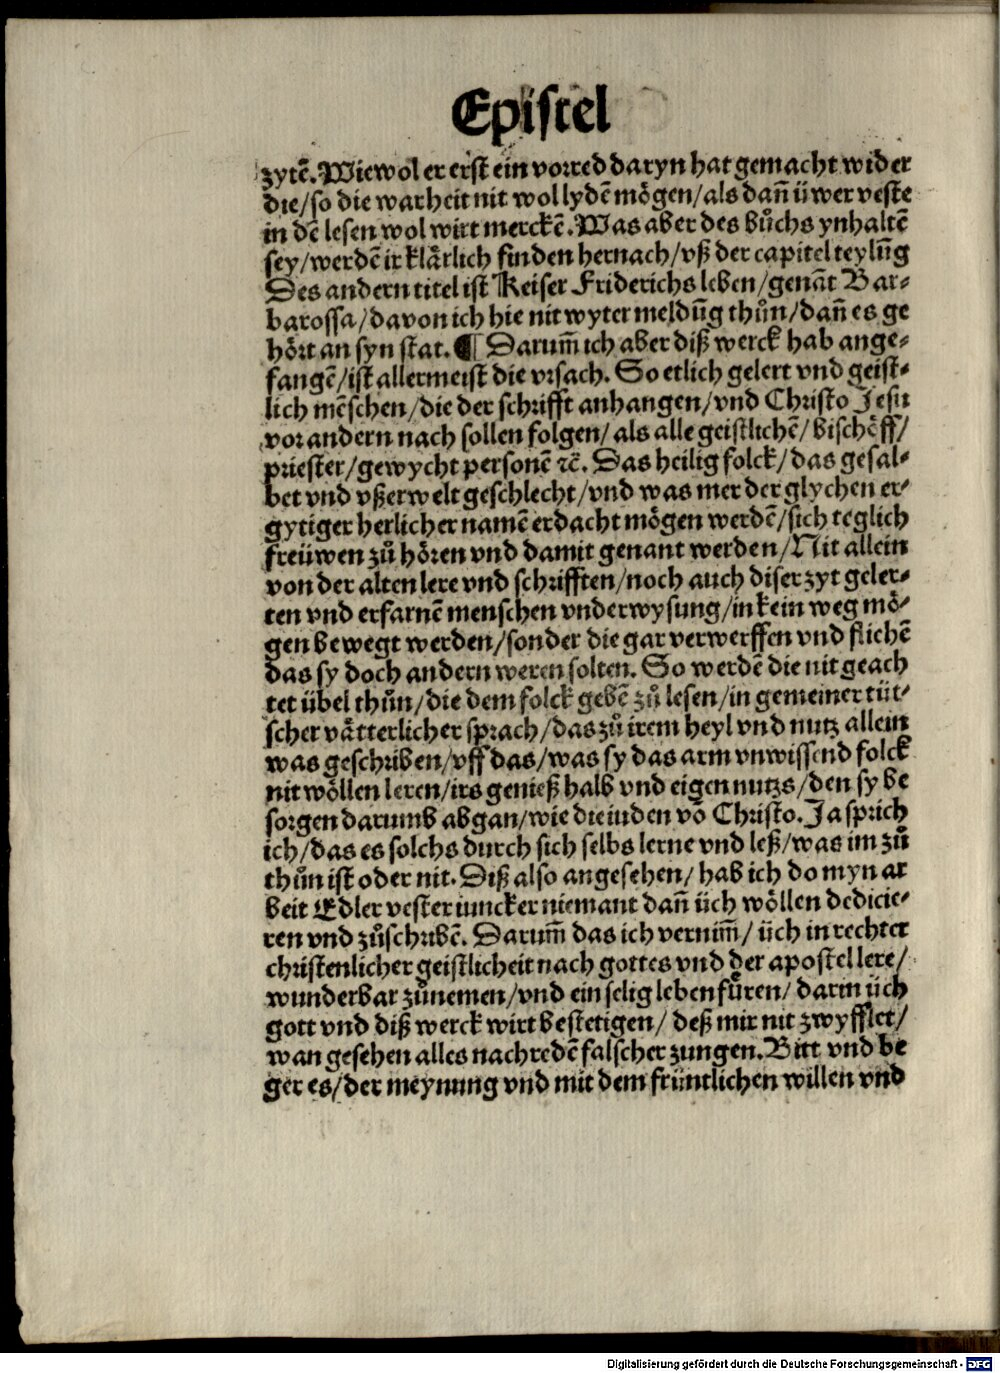 Epistel
zytẽ. Wiewol er erst ein vorred daryn hat gemacht wider
die/so die warheit nit wol lydẽ mögen/als dañ üwer veste
in dẽ lesen wol wirt merckẽ. Was aber des bůchs ynhaltẽ
sey/werdẽ ir klärlich finden hernach/vß der capitel teylũg
Des andern titel ist Keiser Friderichs leben/genãt Bar⸗
barossa/davon ich hie nit wyter meldũg thůn/dañ es ge
hört an syn stat. ¶ Darum̃ ich aber diß werck hab ange⸗
fangẽ/ist allermeist die vrsach. So etlich gelert vnd geist⸗
lich mẽschen/die der schrifft anhangen/vnd Christo Jesu
vor andern nach sollen folgen/als alle geistlichẽ/bischöff/
priester/gewycht personẽ ⁊c̃. Das heilig folck/das gesal⸗
bet vnd vßerwelt geschlecht/vnd was mer der glychen er⸗
gytiger herlicher namẽ erdacht mögen werdẽ/sich teglich
freüwen zů hören vnd damit genant werden/Nit allein
von der alten lere vnd schrifften/noch auch diser zyt geler⸗
ten vnd erfarnẽ menschen vnderwysung/in kein weg mö⸗
gen bewegt werden/sonder die gar verwerffen vnd fliehẽ
das sy doch andern weren solten. So werdẽ die nit geach
tet übel thůn/die dem folck gebẽ zů lesen/in gemeiner tüt⸗
scher vätterlicher sprach/das zů irem heyl vnd nutz allein
was geschriben/vff das/was sy das arm vnwissend folck
nit wöllen leren/irs genieß halb vnd eigen nutzs/den sy be
sorgen darumb abgan/wie die iuden võ Christo. Ja sprich
ich/das es solchs durch sich selbs lerne vnd leß/was im zů
thůn ist oder nit. Diß also angesehen/hab ich do myn ar
beit Edler vester iuncker niemant dañ üch wöllen dedicie⸗
ren vnd zůschribẽ. Darum̃ das ich vernim̃/üch in rechter
christenlicher geistlicheit nach gottes vnd der apostel lere/
wunderbar zůnemen/vnd ein selig leben füren/darin üch
gott vnd diß werck wirt bestetigen/deß mir nit zwyfflet/
wan gesehen alles nachredẽ falscher zungen. Bitt vnd be
ger es/der meynung vnd mit dem früntlichen willen vnd
Digitalisierung gefördert durch die Deutsche Forschungsgemeinschaft - DFG